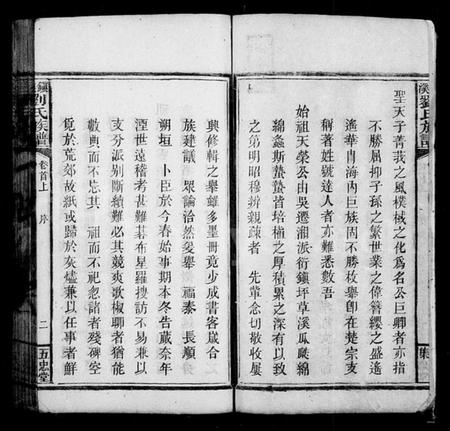 聖天子菁莪之風棫樸之化為名公巨卿者亦指
不勝屈抑子孫之繁世業之偉簪纓之盛遙
遙華胄海內巨族固不勝枚舉卽在楚宗支
稱著姓號達人者亦難悉數吾
始祖天榮公由吳遷湘派衍鎮坪草溪瓜瓞綿
綿螽斯蟄蟄皆培植之厚積累之深有以致
之第明昭穆辨親疎者 先輩念切敬收屢
興修輯之舉雖多墨冊竟少成書客歲合
族建議 眾論洽然爰舉 福泰 長順
朔垣 卜臣於今春始事期本冬告蕆奈年
湮世遠稽考甚難棊布星羅搜訪不易兼以
支分派別斷續難必其競爽歌椒聊者猶能
數典而不忘其 祖而不祀忽諸者殘碑空
覓於荒郊故紙或歸於灰燼兼以任事者鮮
劉氏族譜 卷首上 序 二 五忠堂